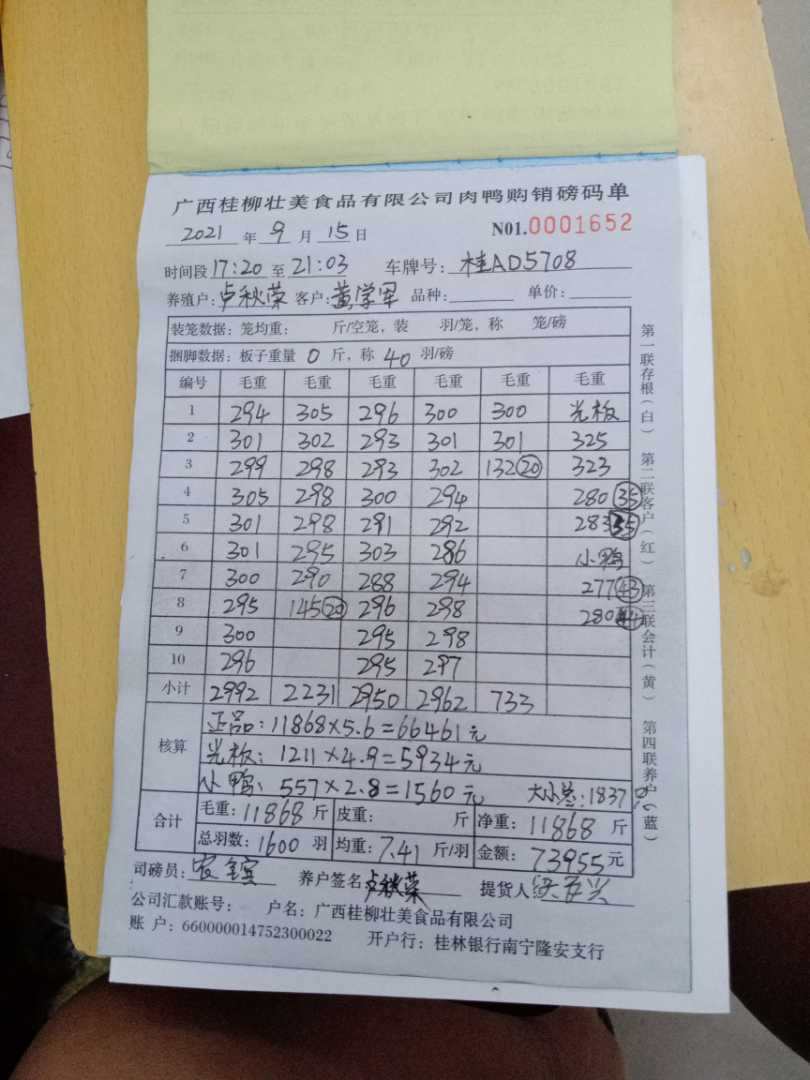 广西桂柳壮美食品有限公司肉鸭购销磅码单
2021 年 9 月 15 日 N01.0001652
时间段 17:20 至 21:03 车牌号: 桂AD5708
养殖户: 卢秋荣 客户: 黄学军 品种: 单价:
装笼数据: 笼均重: 斤/空笼, 装 羽/笼, 称 笼/磅
捆脚数据: 板子重量 0 斤, 称 40 羽/磅
编号 毛重 毛重 毛重 毛重 毛重 毛重
1 294 305 296 300 300 光板
2 301 302 293 301 301 325
3 299 298 293 302 132 20 323
4 305 298 300 294 280 35
5 301 298 291 292 283 35
6 301 295 303 286 小鸭
7 300 290 288 294 277 43
8 295 145 20 296 298 280 44
9 300 295 298
10 296 295 297
小计 2992 2231 2950 2962 733
核算
正品: 11868×5.6=66461元
光板: 1211×4.9=5934元
小鸭: 557×2.8=1560元 大小总: 1837
合计 毛重: 11868 斤 皮重: 斤 净重: 11868 斤
总羽数: 1600 羽 均重: 7.41 斤/羽 金额: 73955元
司磅员: 养户签名 卢秋荣 提货人
公司汇款账号: 户名: 广西桂柳壮美食品有限公司
账 户: 660000014752300022 开户行: 桂林银行南宁隆安支行
第一联存根(白) 第二联客户(红) 第三联会计(黄) 第四联养户(蓝)